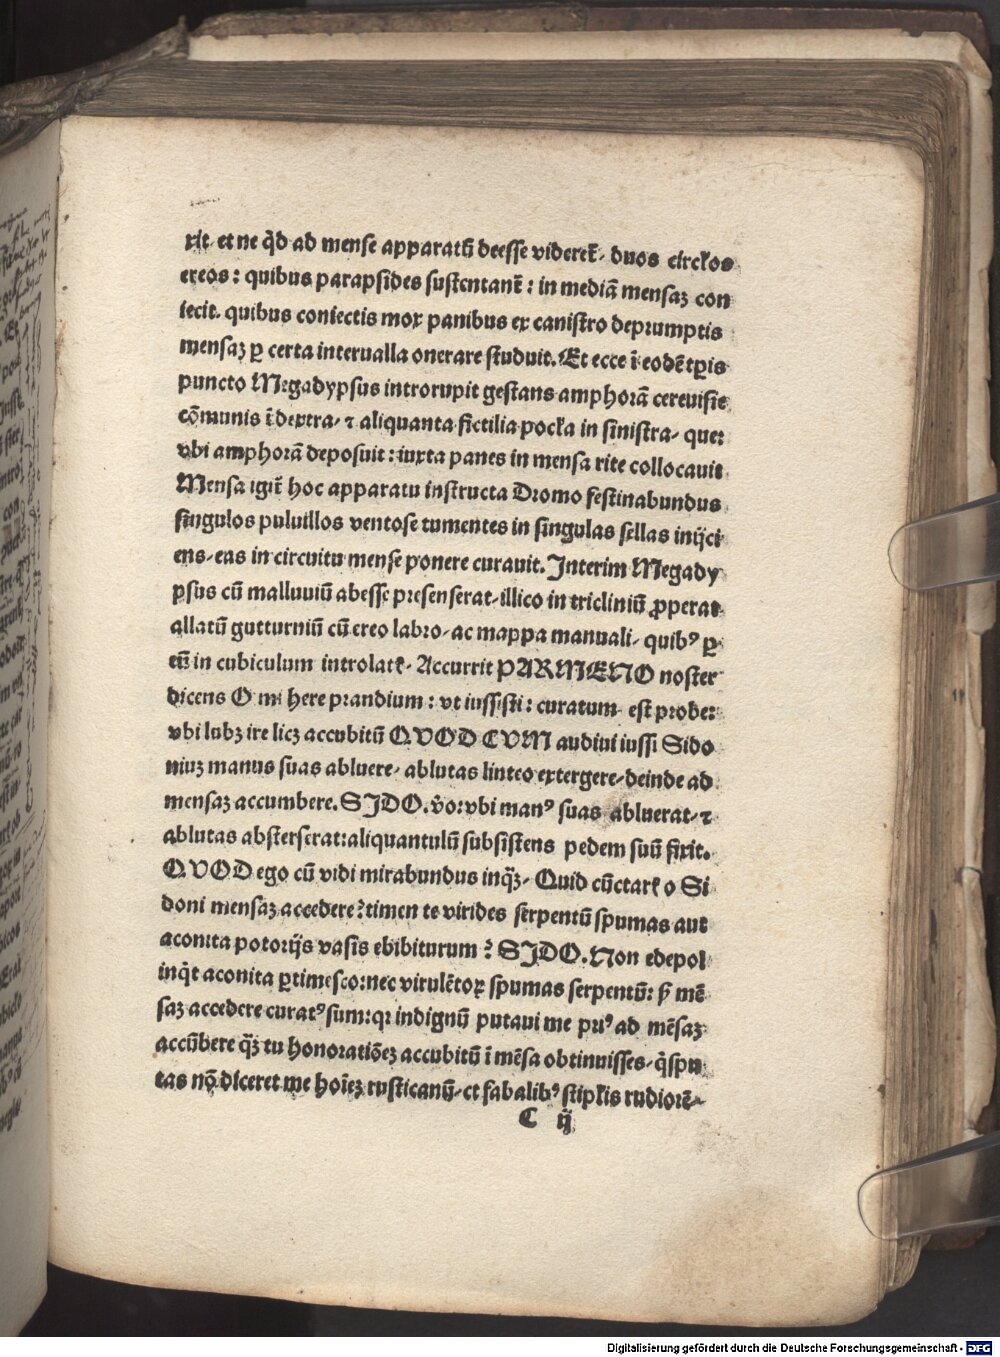 xit· et ne q̄d ad mense apparatū deesse videret̄· duos circłos
ereos : quibus parapsides sustentant̄ : in mediā mensaꝫ con
iecit. quibus coniectis mox panibus ex canistro deprumptis
mensaꝫ ꝑ certa interualla onerare studuit. Et ecce ī eodē tꝑis
puncto Megadypsus introrupit gestans amphorā cereuisie
cōmunis ī dextra· ⁊ aliquanta fictilia pocła in sinistra· que:
vbi amphorā deposuit : iuxta panes in mensa rite collocauit
Mensa igit̄ hoc apparatu instructa Dromo festinabundus
singulos puluillos ventose tumentes in singulas sellas inijci
ens· eas in circuitu mense ponere curauit. Interim Megady
psus cū malluuiū abesse presenserat· illico in tricliniū ꝓperat
allatū gutturniū cū ereo labro· ac mappa manuali· quibꝰ ꝑ
eū in cubiculum introlatꝭ· Accurrit PARMENO noster
dicens O mi here prandium : vt iussisti : curatum est probe:
vbi lubꝫ ire licꝫ accubitū QVOD CVM audiui iussi Sido
niuꝫ manus suas abluere· ablutas linteo extergere· deinde ad
mensaꝫ accumbere. SIDO. v̄o: vbi manꝰ suas abluerat· ⁊
ablutas absterserat: aliquantulū subsistens pedem suū fixit.
QVOD ego cū vidi mirabundus inq̄ꝫ· Quid cūctarꝭ o Si
doni mensaꝫ accedere? timen te virides serpentū spumas aut
aconita potorijs vasis ebibiturum ? SIDO. Non edepol
inq̄t aconita ꝑtimesco: nec virulētoꝝ spumas serpentū: sꝫ mē
saꝫ accedere curatꝰ sum: qꝛ indignū putaui me priꝰ ad mēsaꝫ
accūbere q̄ꝫ tu honoratiōeꝫ accubitū ī mēsa obtinuisses· q̄spu
tas nō diceret me hoīeꝫ rusticanū· et fabalibꝰ stipłis rudiorē·
C ij
Digitalisierung gefördert durch die Deutsche Forschungsgemeinschaft - DFG